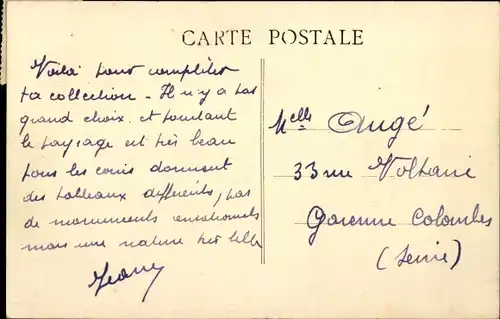 CARTE POSTALE
Voilà pour compléter
ta collection - Il n'y a pas
grand choix. et pourtant
le paysage est très beau
tous les coins donnent
des tableaux différents, pas
de monuments
mais une nature très belle
Jeany
Melle Augé
33 rue Voltaire
Garenne Colombes
(Seine)